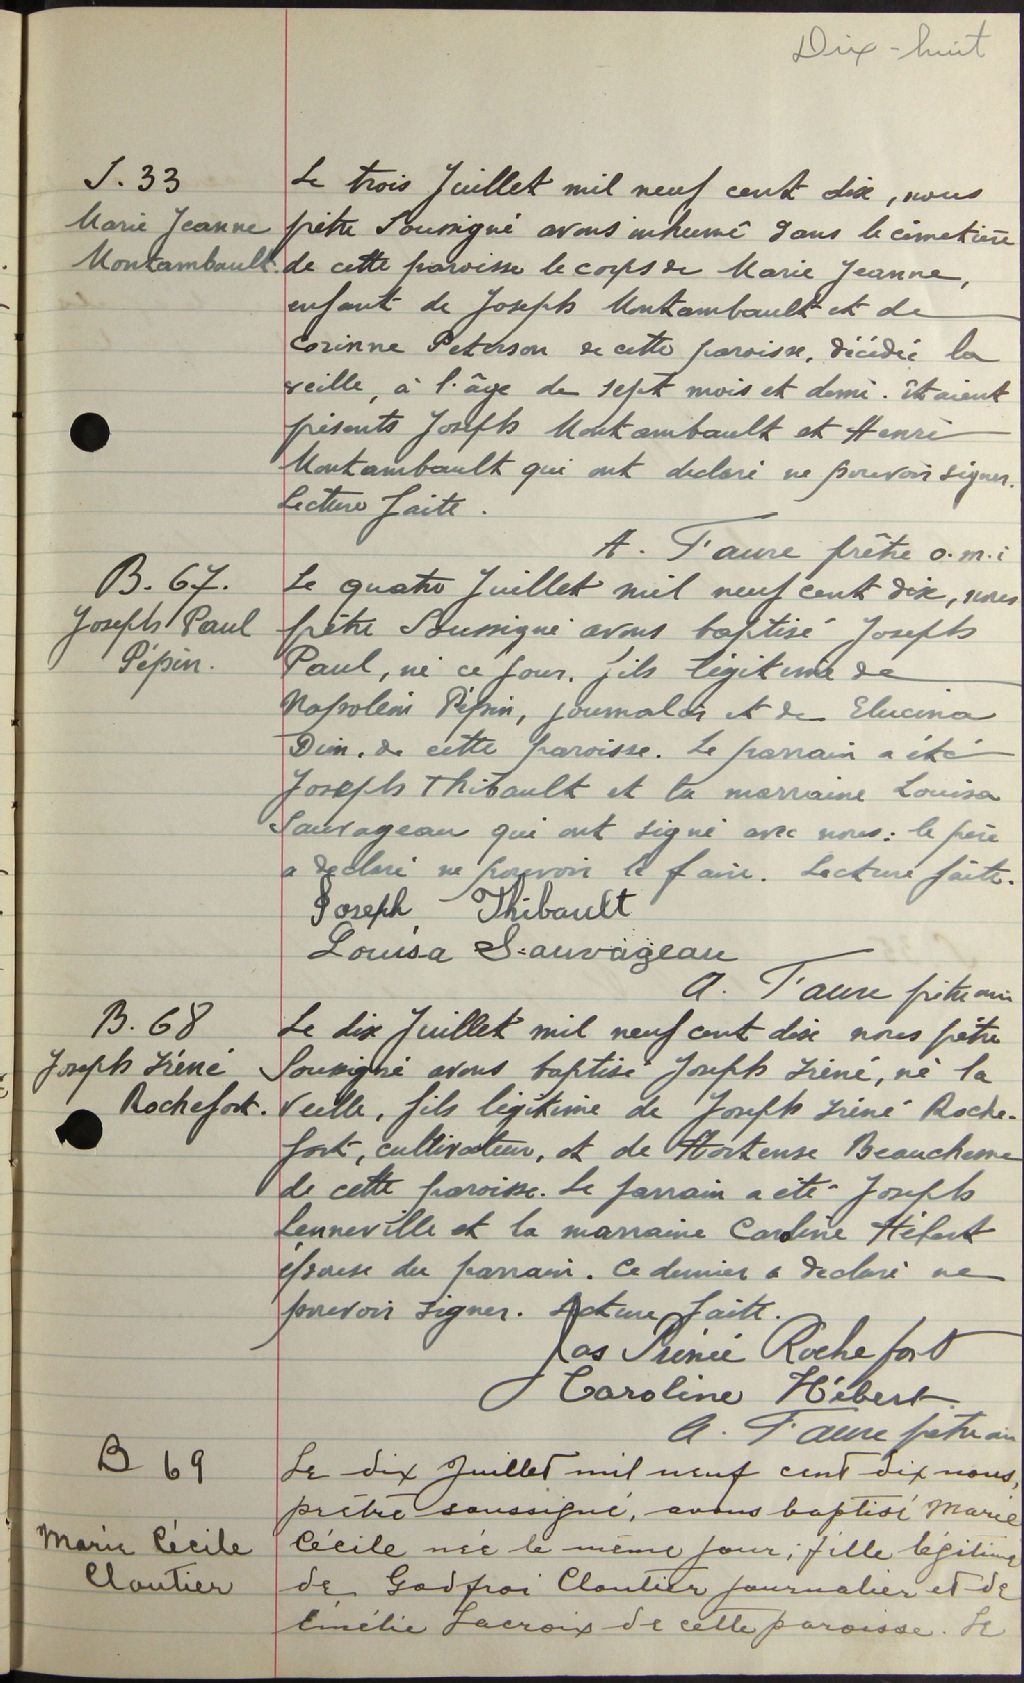 Dix-huit
S. 33
Marie Jeanne
Montambault.
Le trois Juillet mil neuf cent dix, nous
prêtre soussigné avons inhumé dans le cimetière
de cette paroisse le corps de Marie Jeanne,
enfant de Joseph Montambault et de
Corinne Peterson de cette paroisse, décédée la
veille, à l'âge de sept mois et demi. Etaient
présents Joseph Montambault et Henri
Montambault qui ont declaré ne pouvoir signer.
Lecture faite.
A. Faure prêtre o.m.i
B. 67.
Joseph Paul
Pépin.
Le quatre Juillet mil neuf cent dix, nous
prêtre Soussigné avons baptisé Joseph
Paul, né ce jour, fils légitime de
Napoléon Pépin, journalier et de Elucina
Dion, de cette paroisse. Le parrain a été
Joseph Thibault et la marraine Louisa
Sauvageau qui ont signé avec nous: le père
a declaré ne pouvoir le faire. Lecture faite.
Joseph Thibault
Louisa Sauvageau
A. Faure prêtre omi
B. 68
Joseph Iréné
Rochefort.
Le dix Juillet mil neuf cent dix nous prêtre
Soussigné avons baptisé Joseph Iréné, né la
veille, fils légitime de Joseph Iréné Roche-
fort, cultivateur, et de Hortense Beauchesne
de cette paroisse. Le parrain a été Joseph
Lenneville et la marraine Caroline Hébert
épouse du parrain. Ce dernier a declaré ne
pouvoir signer. Lecture faite.
Jos Irénée Rochefort
Caroline Hébert
A. Faure prêtre omi
B 69
Marie Cécile
Cloutier
Le dix Juillet mil neuf cent dix nous,
prêtre soussigné, avons baptisé Marie
Cécile née le même jour, fille légitime
de Godfroi Cloutier journalier et de
Emélie Lacroix de cette paroisse. Le